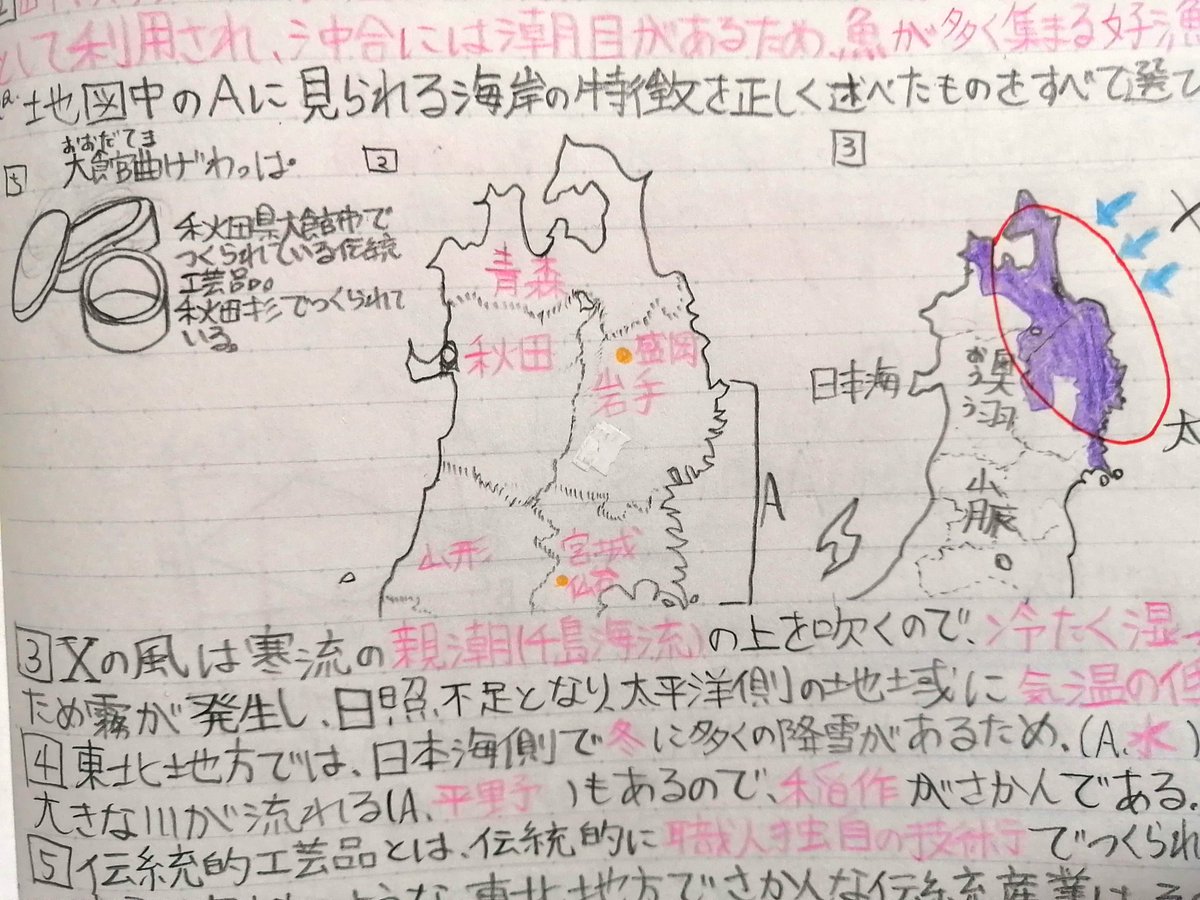 として利用され、沖合には潮目があるため、魚が多く集まる好漁
地図中のAに見られる海岸の特徴を正しく述べたものをすべて選て
5
おおだてま
大館曲げわっぱ
秋田県大館市で
つくられている伝統
工芸品。
秋田杉でつくられて
いる。
2
青森
秋田
盛岡
岩手
山形
宮城
仙台
A
3
日本海
おううう
奥羽
山脈
太
3 Xの風は寒流の親潮(千島海流)の上を吹くので、冷たく湿っ
ため霧が発生し、日照不足となり、太平洋側の地域に気温の低
4 東北地方では、日本海側で冬に多くの降雪があるため、(A.水)
大きな川が流れる(A.平野)もあるので、稲作がさかんである。
5 伝統的工芸品とは、伝統的に職人独自の技術でつくられ
東北地方でさかんな伝統産業は